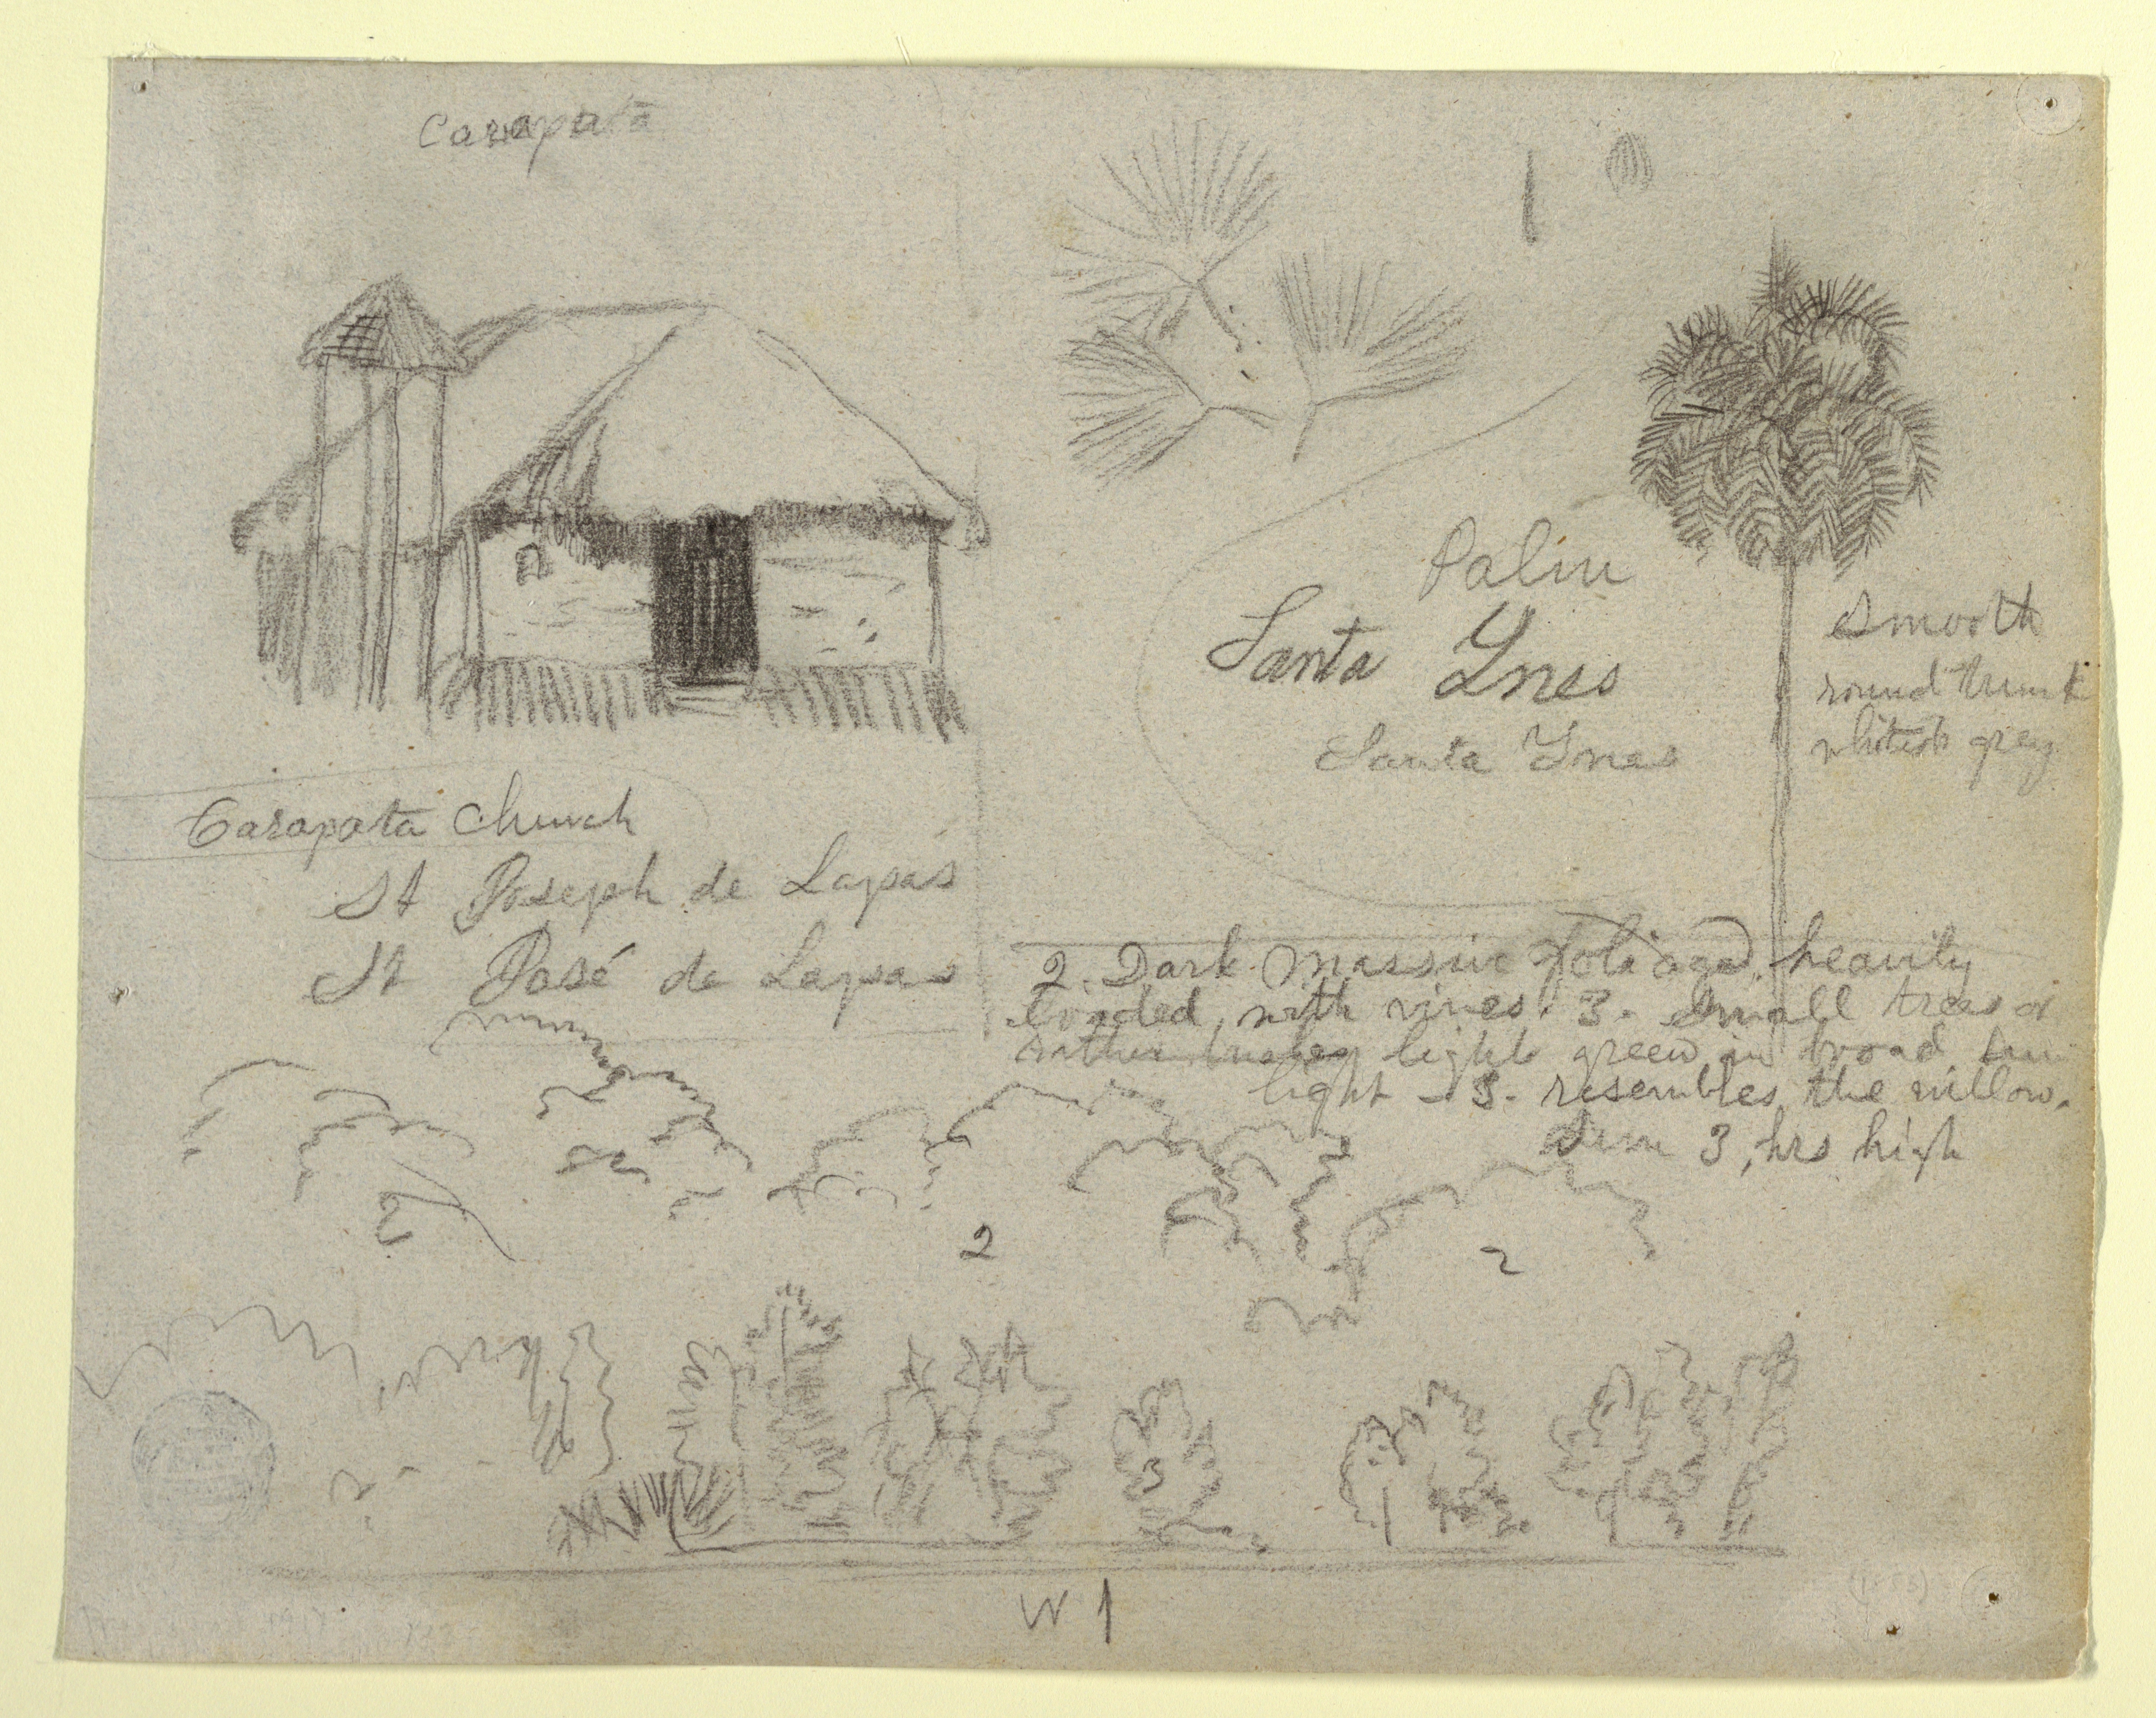 Carapata
Palm
Santa Ynes
Santa Ynes
Smooth
round trunk
whitish grey
Carapata Church
St Joseph de Lapas
St José de Lapas
2. Dark massive foliage, heavily
loaded, with vines. 3. Small trees or
rather light green in broad sun
light - 3. resembles the willow.
Sun 3, hrs high
2
2
2
3
3
W 1